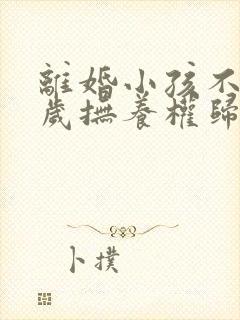 離婚小孩不
歲撫養權歸
卜撲